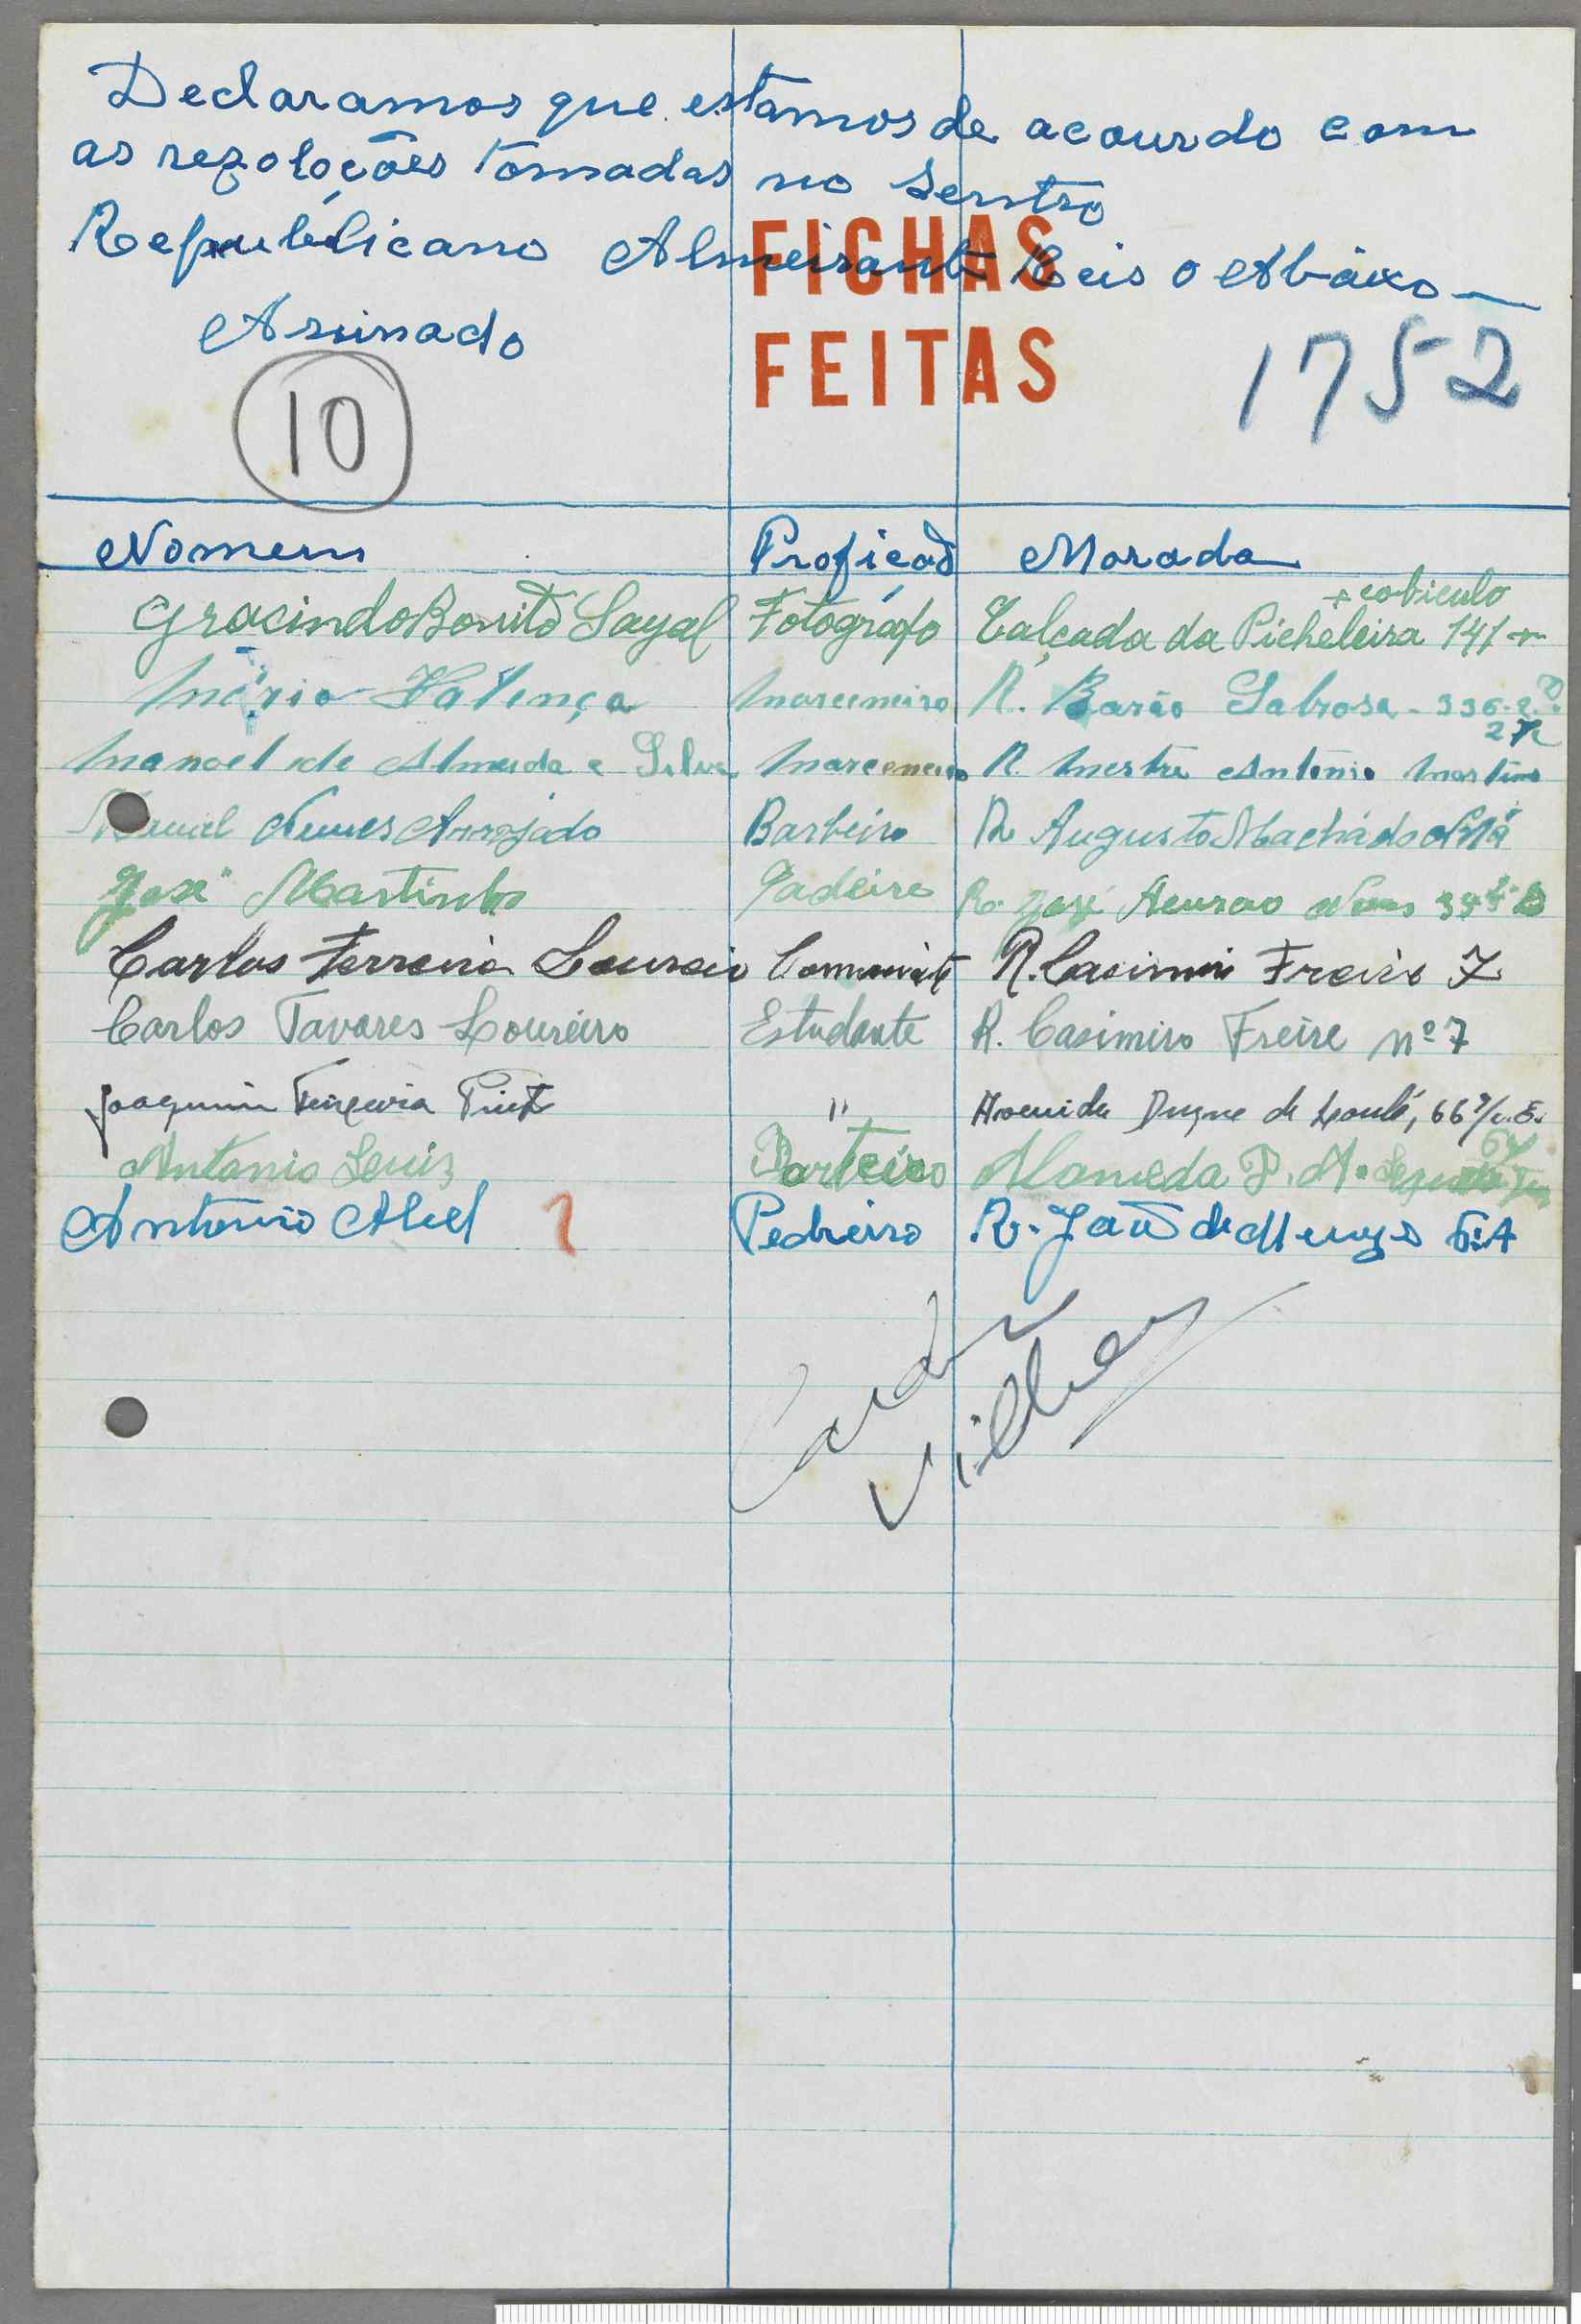 Declaramos que estamos de acourdo com
as rezoloções tomadas no Sentro
Repubelicano Almeirante Reis o Abáixo
Asinado
FICHAS
FEITAS
1752
10
Nomens Proficaõ Morada
Gracindo Bonito Sayal Fotográfo Calçada da Picheleira 141 +
+ cobiculo
Mário Valença Marceneiro R. Barão Sabrosa - 336-2º
Manoel de Almeida e Silva Marceneiro R. Mestre António Martins
2
Manuel Nunes Arrojado Barbeiro R Augusto Machado
José Martinho Padeiro R. José Acurcio
Carlos Ferreira Loureiro Comerciante R. Casimiro Freire 7
Carlos Tavares Loureiro Estudante R. Casimiro Freire nº 7
Joaquim Teixeira Pinto " Avenida Duque de Loulé, 66 r/c. E.
António Luis Porteiro Alameda D. A.
64
António Abel Pedreiro R. João de Menezes